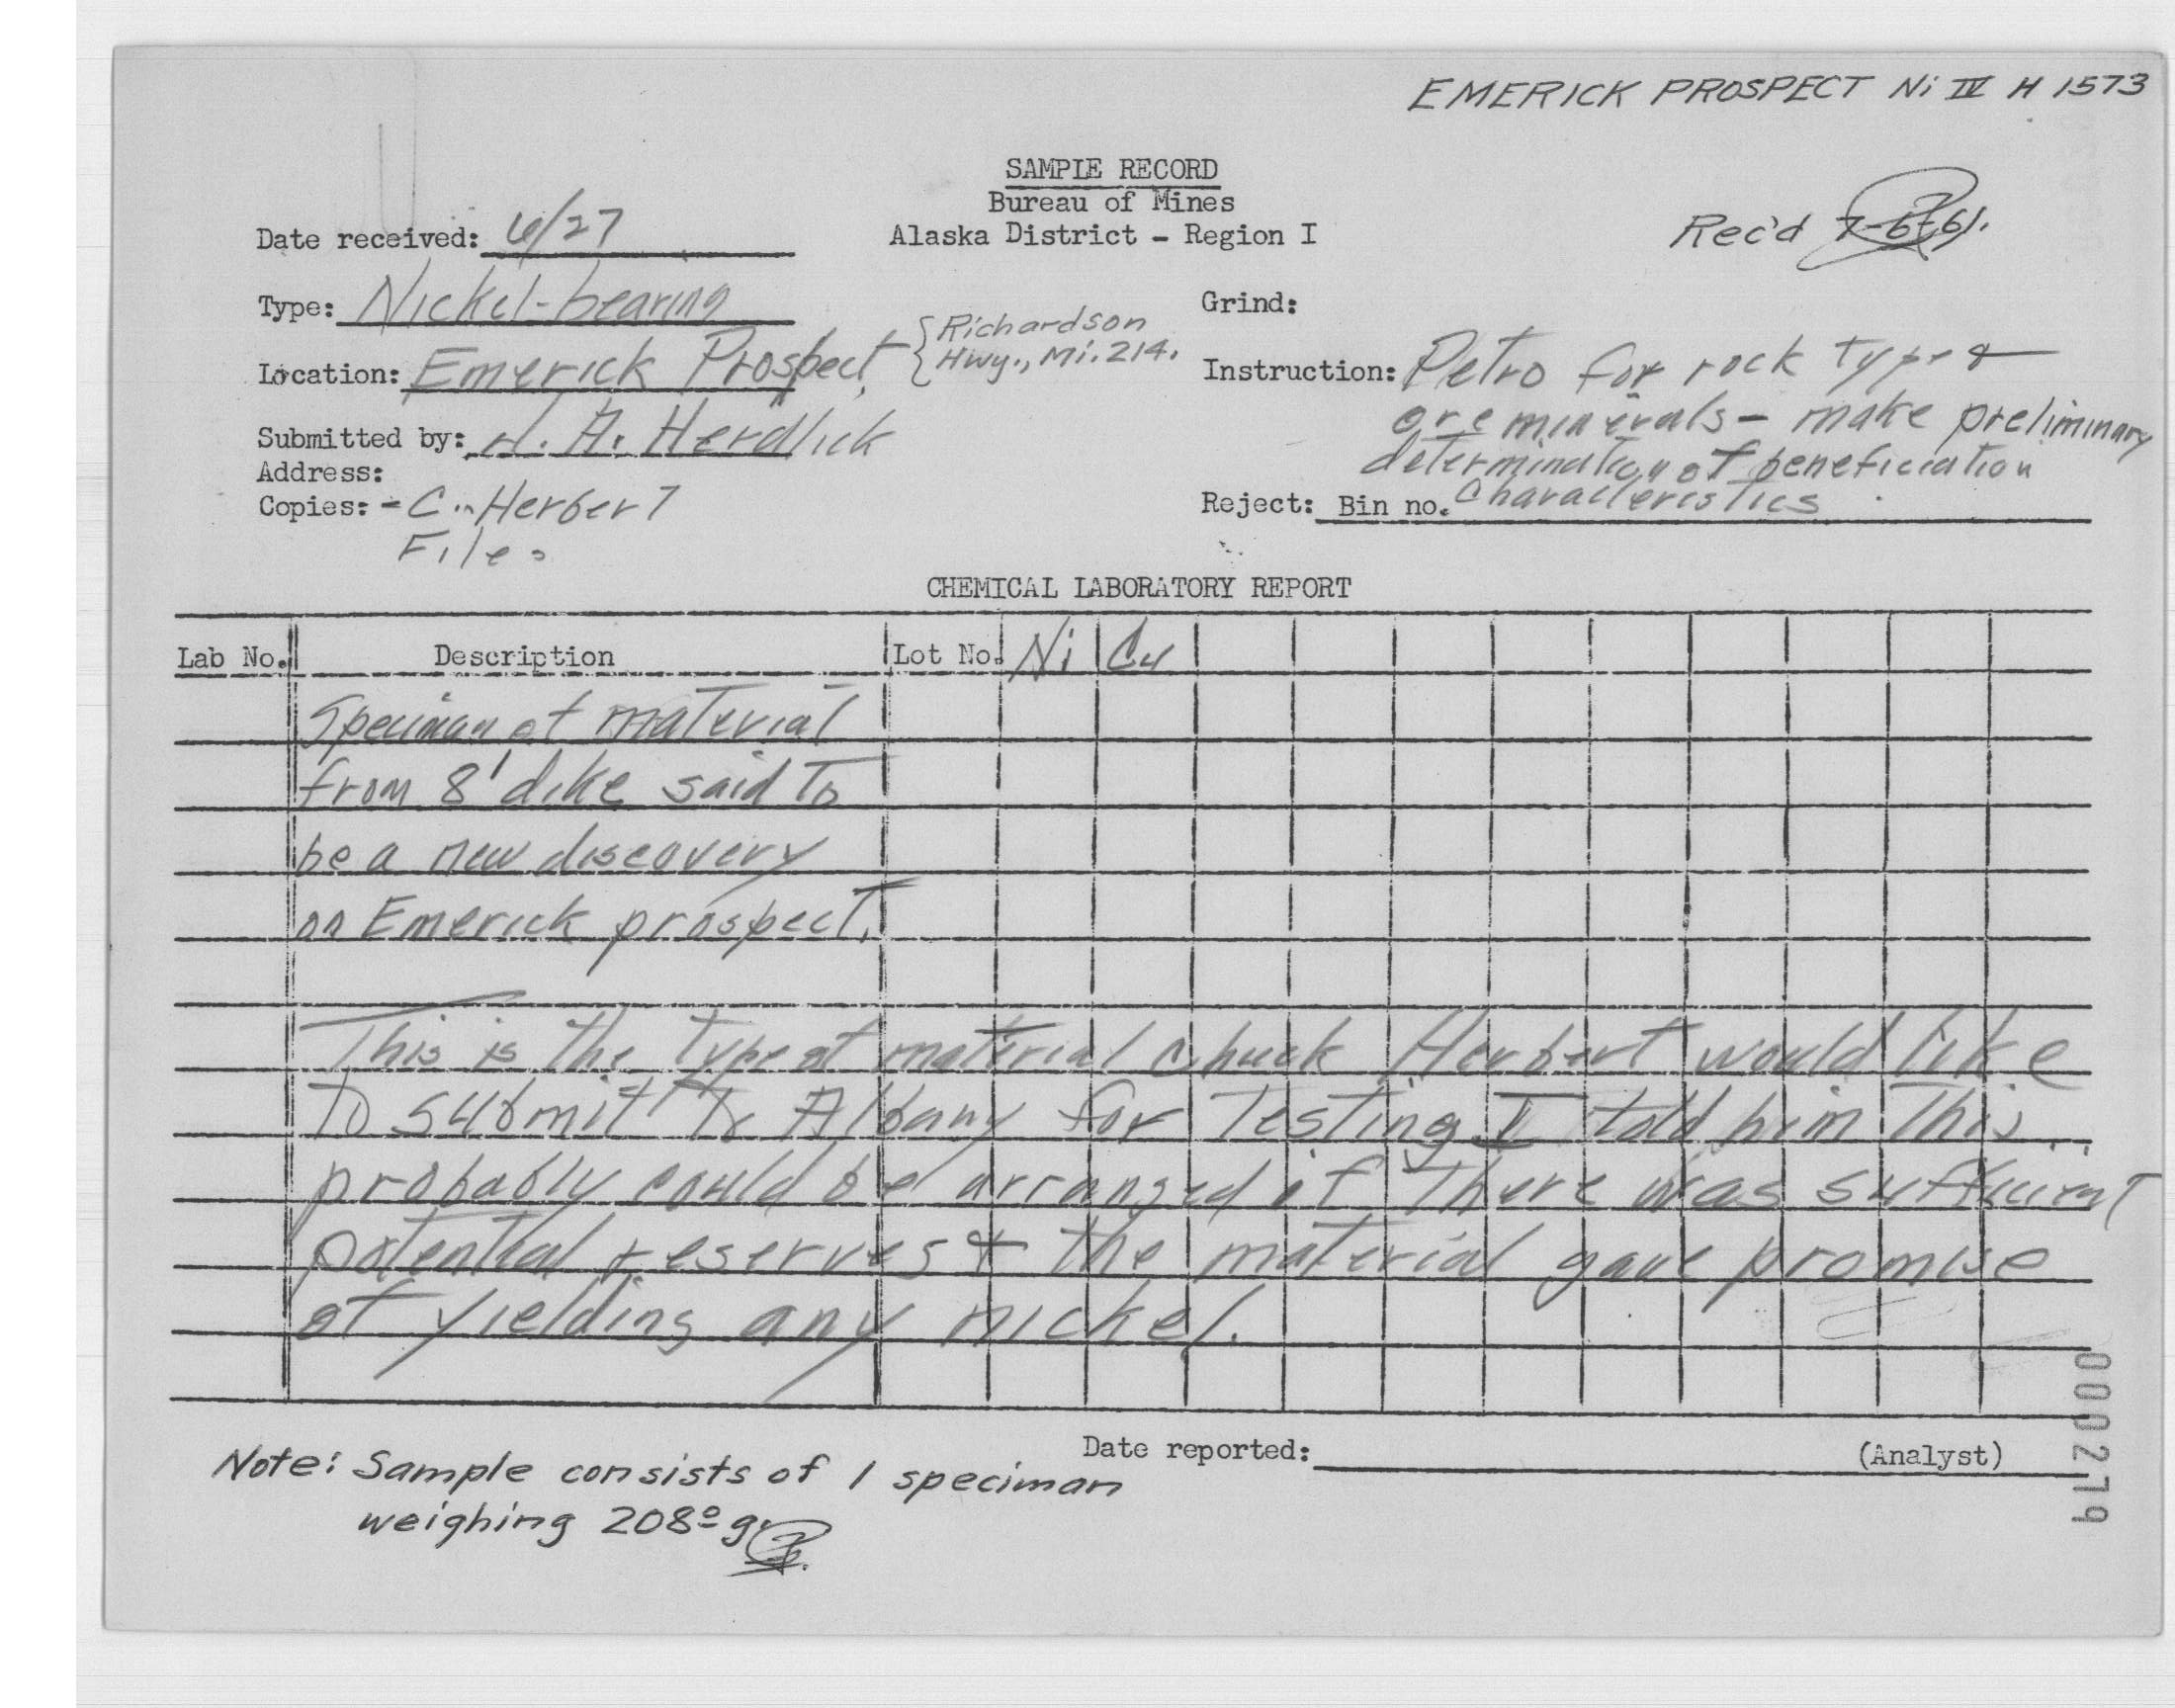 EMERICK PROSPECT Ni IV H 1573
SAMPLE RECORD
Bureau of Mines
Alaska District - Region I
Rec'd 7-6-61.
Date received: 6/27
Type: Nickel-bearing
Location: Emerick Prospect, { Richardson
{ Hwy., Mi. 214.
Submitted by: H. A. Herdlick
Address:
Copies: - C. Herbert
File
Grind:
Instruction: Petro for rock type &
ore minerals - make preliminary
determination of beneficiation
characteristics
Reject: Bin no.
CHEMICAL LABORATORY REPORT
Lab No. Description Lot No. Ni Cu
Speciman of material
from 8' dike said to
be a new discovery
on Emerick prospect.
This is the type of material Chuck Herbert would like
to submit to Albany for testing I told him this
probably could be arranged if there was sufficient
potential reserves & the material gave promise
of yielding any nickel.
Date reported: (Analyst)
Note: Sample consists of 1 speciman
weighing 208º g.
000279